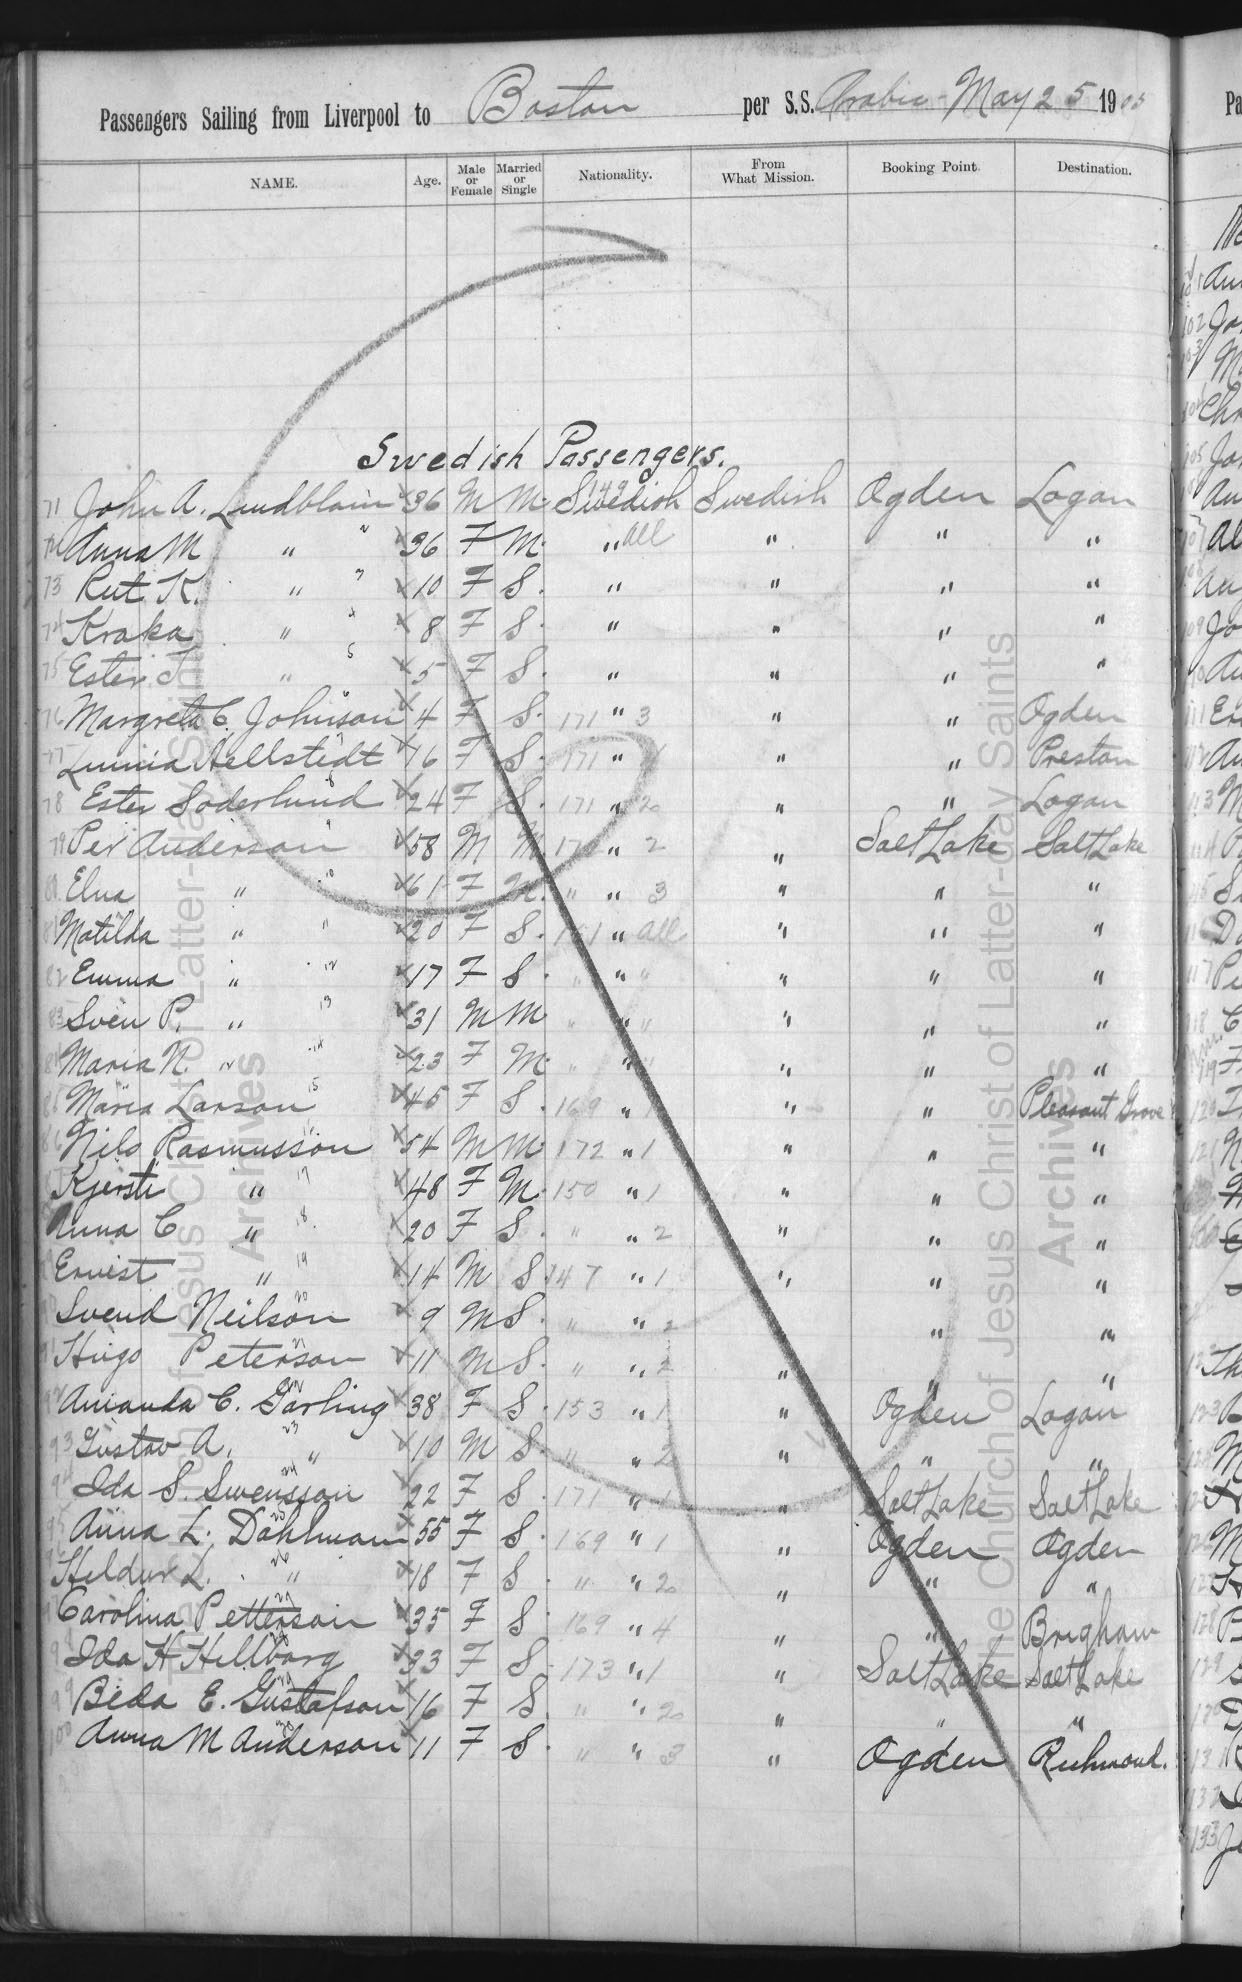 Passengers Sailing from Liverpool to Boston per S.S. Arabic - May 25 1905
NAME. Age. Male or Female Married or Single Nationality. From What Mission. Booking Point. Destination.
Swedish Passengers.
71 John A. Lundblom 36 M M Swedish 149 Swedish Ogden Logan
72 Anna M " 36 F M " all " " "
73 Rut K. " 10 F S. " " " "
74 Kraka " 8 F S. " " " "
75 Ester " 5 F S. " " " "
76 Margreta C. Johnson 4 F S. 171 " 3 " " Ogden
77 Hellstedt 76 F S. 171 " 1 " " Preston
78 Ester Soderlund 24 F S. 171 " 20 " " Logan
79 Per Anderson 58 M M " 2 " Salt Lake Salt Lake
80 Elna " 61 F M. " " 3 " " "
81 Matilda " 20 F S. " all " " "
82 Emma " 17 F S. " " " " " "
83 Sven P. " 31 M M " " " " " "
84 Maria N. " 23 F M. " " " " "
85 Maria Larson 45 F S. 169 " 1 " " Pleasant Grove
86 Nils Rasmusson 54 M M 172 " 1 " " "
Kjersti " 48 F M. 150 " 1 " " "
Anna C " 20 F S. " " 2 " " "
Ernist " 14 M S. 147 " 1 " " "
Svend Neilson 9 M S. " " 2 " "
Hugo Peterson 11 M S. " " 2 " " "
92 Amanda C. Garling 38 F S. 153 " 1 " Ogden Logan
93 Gustav A. " 10 M S. " " 2 " " "
94 Ida S. Swensson 22 F S. 171 " 1 " Salt Lake Salt Lake
95 Anna L. Dahlman 55 F S. 169 " 1 " Ogden Ogden
96 Heldur L. " 18 F S. " " 20 " " "
Carolina Petterson 35 F S 169 " 4 " " Brigham
98 Ida H Hillborg 33 F S. 173 " 1 " Salt Lake Salt Lake
99 Beda E. Gustafson 16 F S. " " 20 " " "
100 Anna M Anderson 11 F S. " " 3 " Ogden Richmond.
The Church of Jesus Christ of Latter-day Saints
Archives
The Church of Jesus Christ of Latter-day Saints
Archives